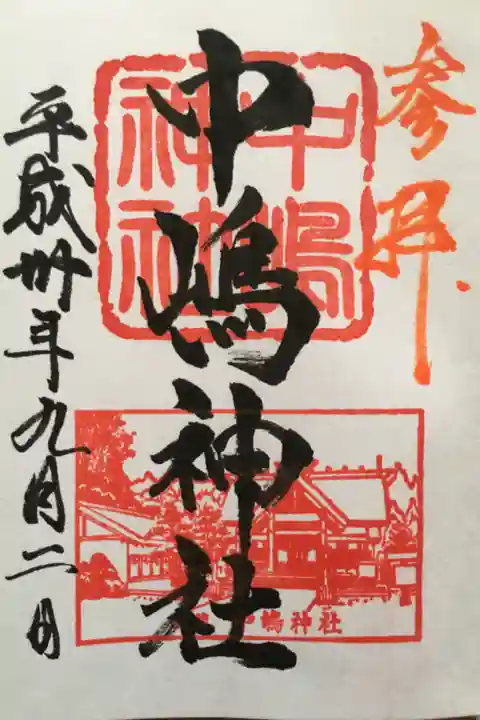 参拝
中嶋神社
平成卅年九月二日
中嶋
神社
中嶋神社